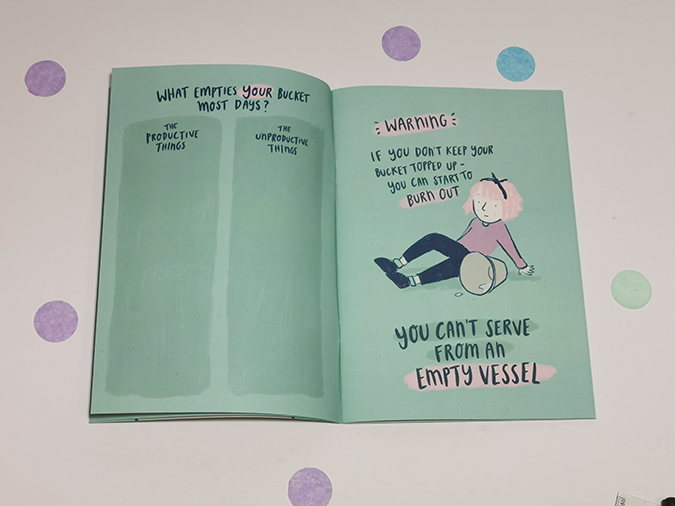 WHAT EMPTIES YOUR BUCKET
MOST DAYS?
THE
PRODUCTIVE
THINGS
THE
UNPRODUCTIVE
THINGS
WARNING
IF YOU DON'T KEEP YOUR
BUCKET TOPPED UP -
YOU CAN START TO
BURN OUT
YOU CAN'T SERVE
FROM AN
EMPTY VESSEL